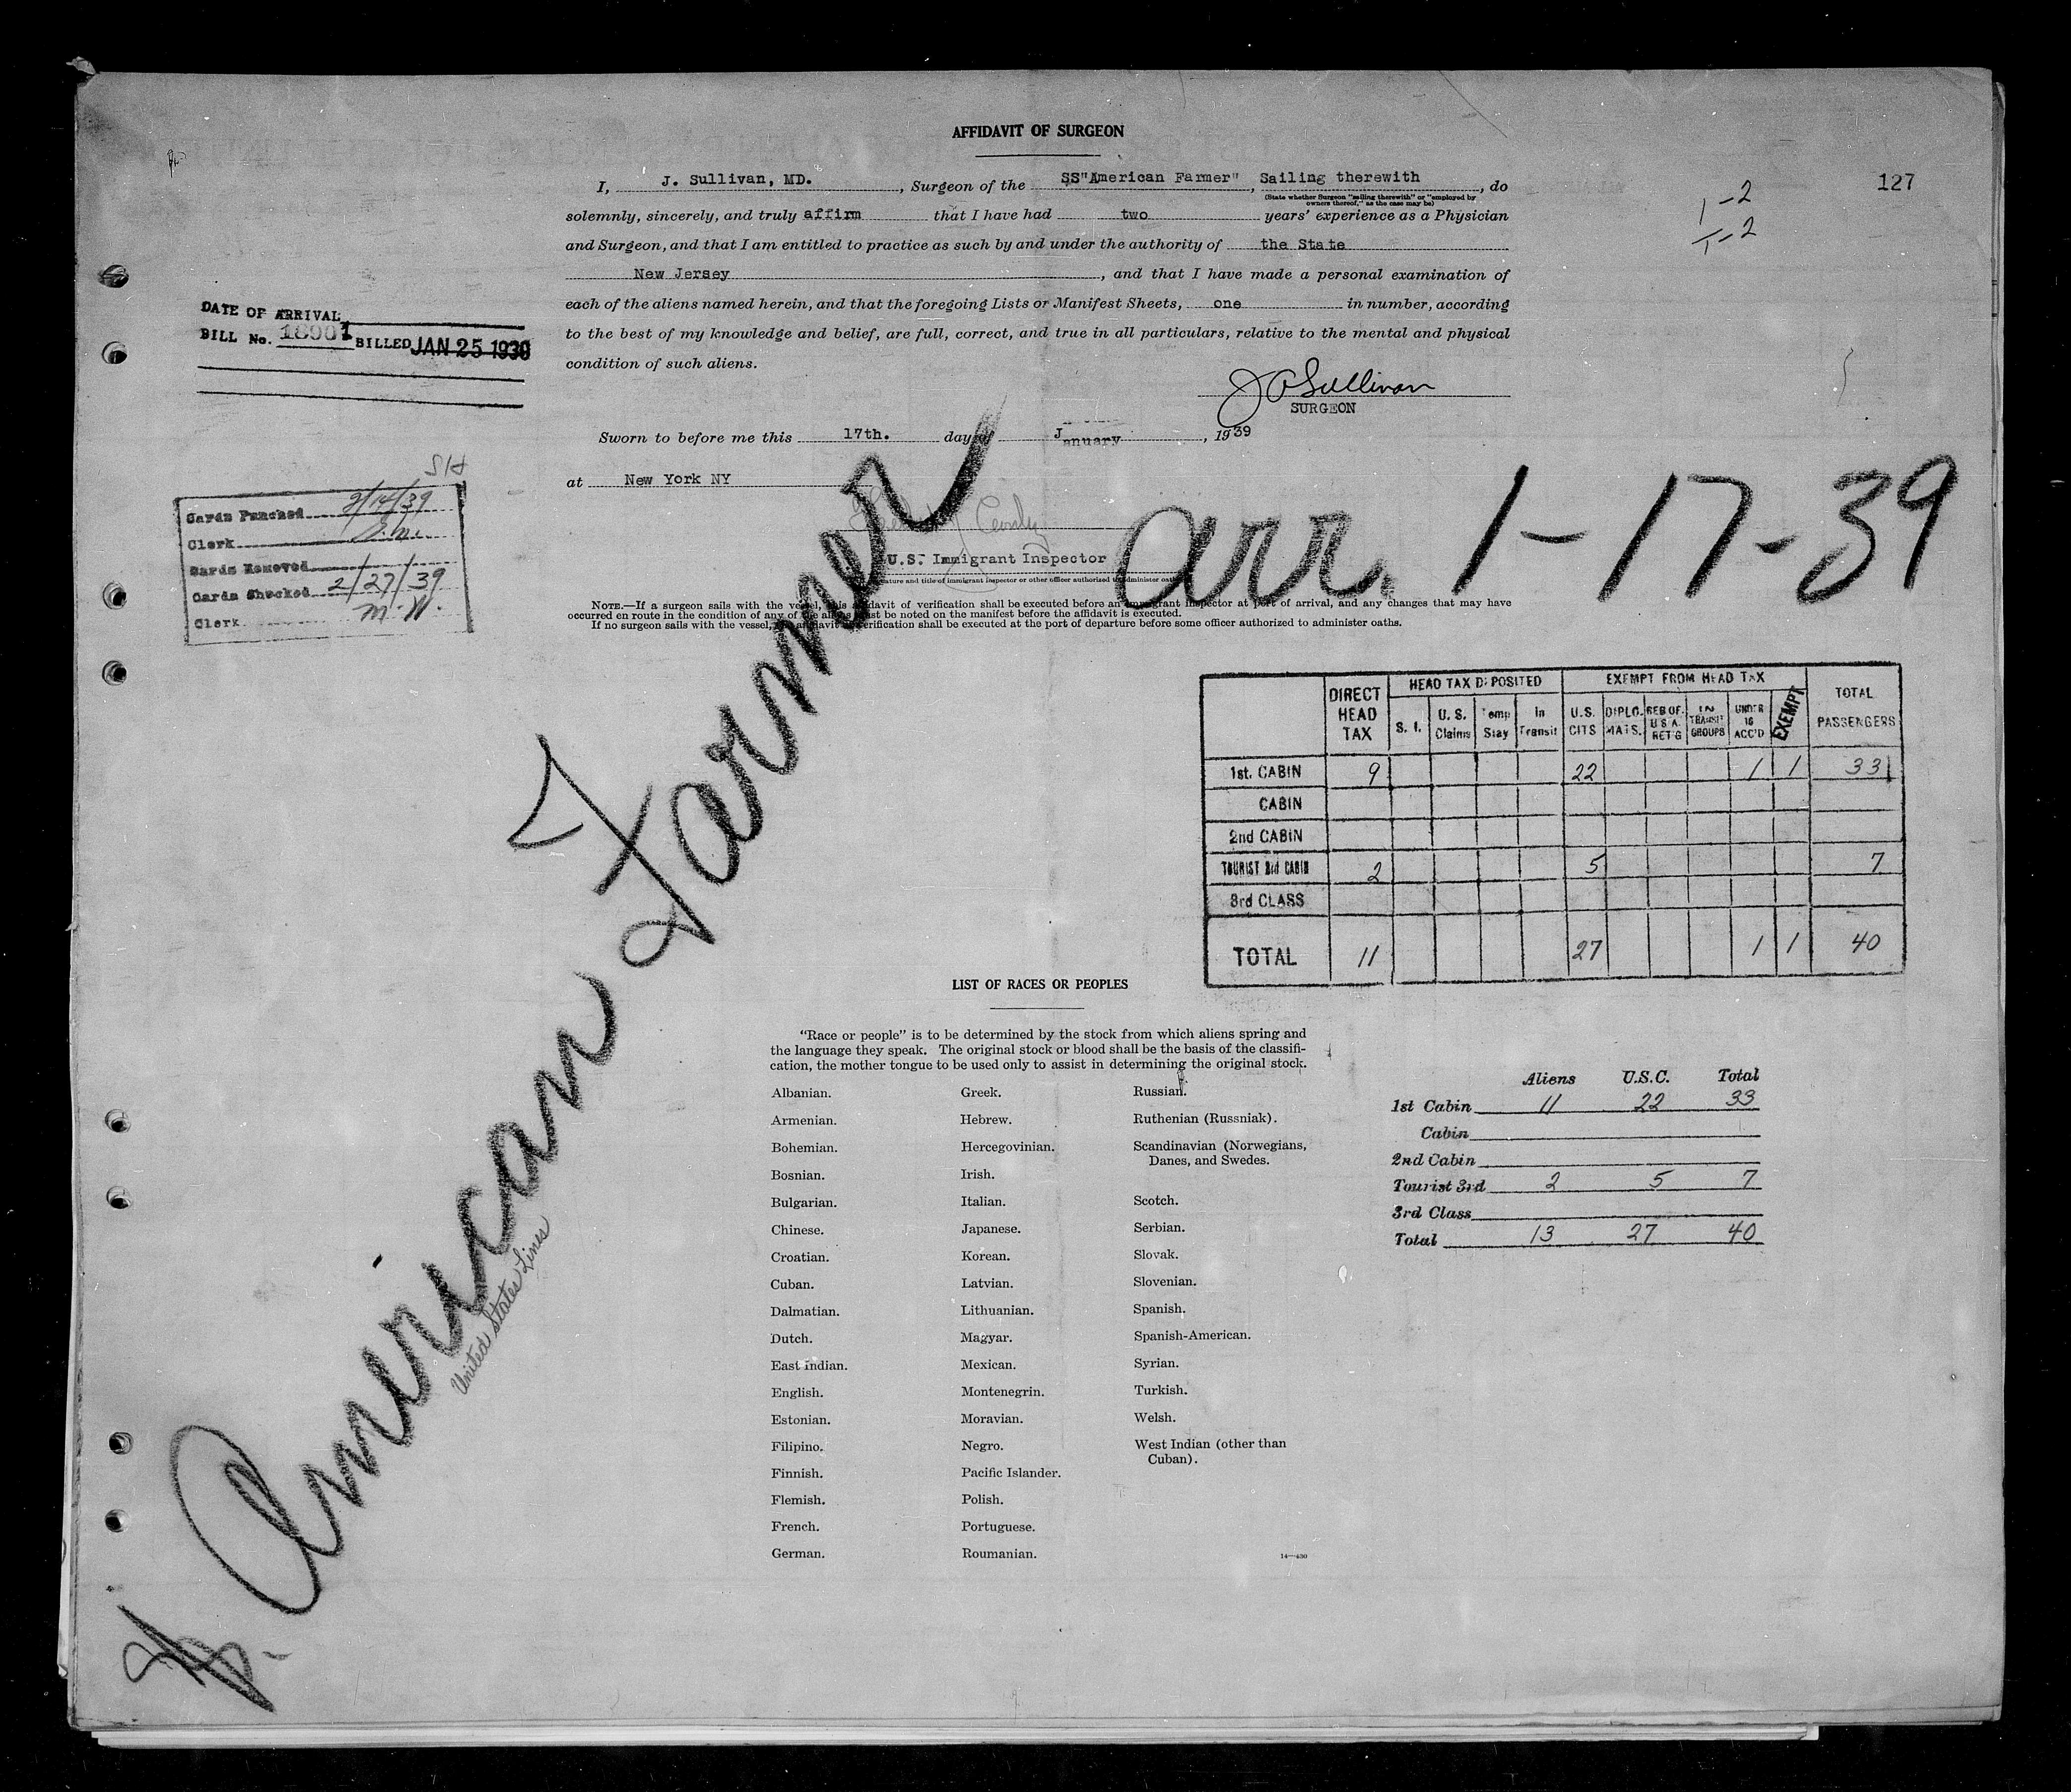 AFFIDAVIT OF SURGEON
127
I, J. Sullivan, MD. , Surgeon of the SS"American Farmer" , Sailing therewith , do
(State whether Surgeon "sailing therewith" or "employed by
owners thereof," as the case may be)
solemnly, sincerely, and truly affirm that I have had two years' experience as a Physician
and Surgeon, and that I am entitled to practice as such by and under the authority of the State
New Jersey , and that I have made a personal examination of
each of the aliens named herein, and that the foregoing Lists or Manifest Sheets, one in number, according
to the best of my knowledge and belief, are full, correct, and true in all particulars, relative to the mental and physical
condition of such aliens.
1-2
1-2
DATE OF ARRIVAL
BILL No. 18901 BILLED JAN 25 1939
J O Sullivan
SURGEON
Sworn to before me this 17th. day of January , 1939
at New York NY
U.S. Immigrant Inspector
ature and title of immigrant inspector or other officer authorized to administer oath
NOTE.—If a surgeon sails with the vessel, this affidavit of verification shall be executed before an immigrant inspector at port of arrival, and any changes that may have
occurred en route in the condition of any of the aliens must be noted on the manifest before the affidavit is executed.
If no surgeon sails with the vessel, the affidavit of verification shall be executed at the port of departure before some officer authorized to administer oaths.
Cards Punched 2/14/39
Clerk
Cards Removed
Cards Checked 2/27/39
Clerk M.W.
arr. 1-17-39
American Farmer
United States Lines
DIRECT HEAD TAX HEAD TAX DEPOSITED EXEMPT FROM HEAD TAX TOTAL PASSENGERS
S. I. U. S. Claims Temp Stay In Transit U.S. CITS DIPLO-MATS. RES OF U S A RET'G IN TRANSIT GROUPS UNDER 16 ACC'D EXEMPT
1st. CABIN 9 22 1 1 33
CABIN
2nd CABIN
TOURIST 3rd CABIN 2 5 7
3rd CLASS
TOTAL 11 27 1 1 40
LIST OF RACES OR PEOPLES
"Race or people" is to be determined by the stock from which aliens spring and
the language they speak. The original stock or blood shall be the basis of the classifi-
cation, the mother tongue to be used only to assist in determining the original stock.
Albanian.
Armenian.
Bohemian.
Bosnian.
Bulgarian.
Chinese.
Croatian.
Cuban.
Dalmatian.
Dutch.
East Indian.
English.
Estonian.
Filipino.
Finnish.
Flemish.
French.
German.
Greek.
Hebrew.
Hercegovinian.
Irish.
Italian.
Japanese.
Korean.
Latvian.
Lithuanian.
Magyar.
Mexican.
Montenegrin.
Moravian.
Negro.
Pacific Islander.
Polish.
Portuguese.
Roumanian.
Russian.
Ruthenian (Russniak).
Scandinavian (Norwegians,
Danes, and Swedes.
Scotch.
Serbian.
Slovak.
Slovenian.
Spanish.
Spanish-American.
Syrian.
Turkish.
Welsh.
West Indian (other than
Cuban).
Aliens U.S.C. Total
1st Cabin 11 22 33
Cabin
2nd Cabin
Tourist 3rd 2 5 7
3rd Class
Total 13 27 40